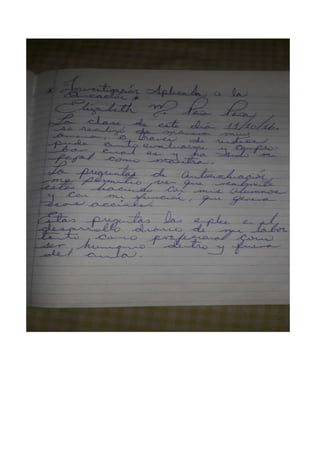 * Investigación Aplicada a la
Educación *
Elizabeth M.
La clase de este día 11/10/16.
se realizó de manera muy
a través de
pude autoevaluarme y
cual es y ha sido mi
papel como maestra.
La preguntas de Autoevaluación
me permitió ver que realmente
estoy haciendo con mis alumnos
y con mi función, que genera
esas acciones.
Estas preguntas las aplico en el
desarrollo diario de mi labor
tanto como profesional como
ser humano dentro y fuera
del aula.